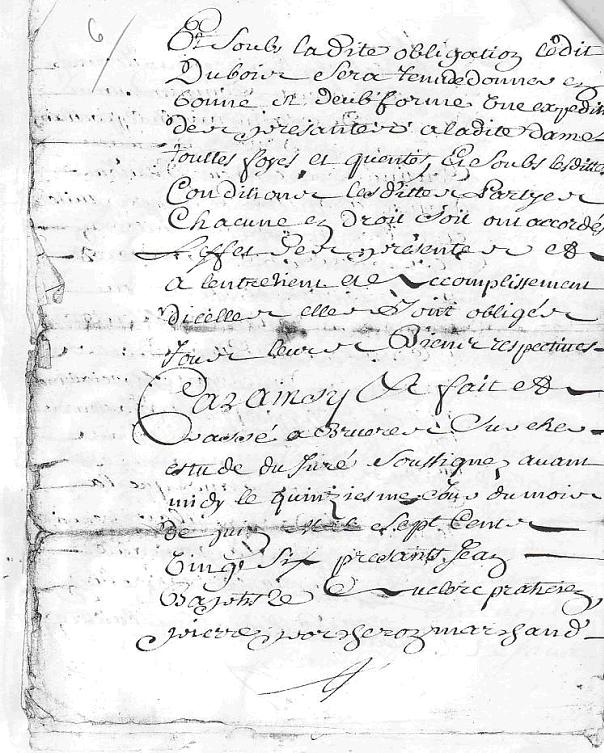 6
Et soubs ladite obligation ledit
Dubois sera tenu de donner en
bonne et deub forme une expediti
des presantes a ladite dame
touttes foyes et quentes, Et soubs lesdittes
Conditions lesdittes Partyes
Chacune en Droit soit ont accordés
Leffet des présentes et
a lentretient et accomplissement
dicelles elles sont obligés
tous leurs Biens respectives
Car amsy Et fait et
passé a Es
estude du Juré soussigne, avant
midy le quinziesme Jour du mois
de juin Mil sept Cents
Vingt Six presants Jean
Baptiste Leclerc praticien,
pierre marchand